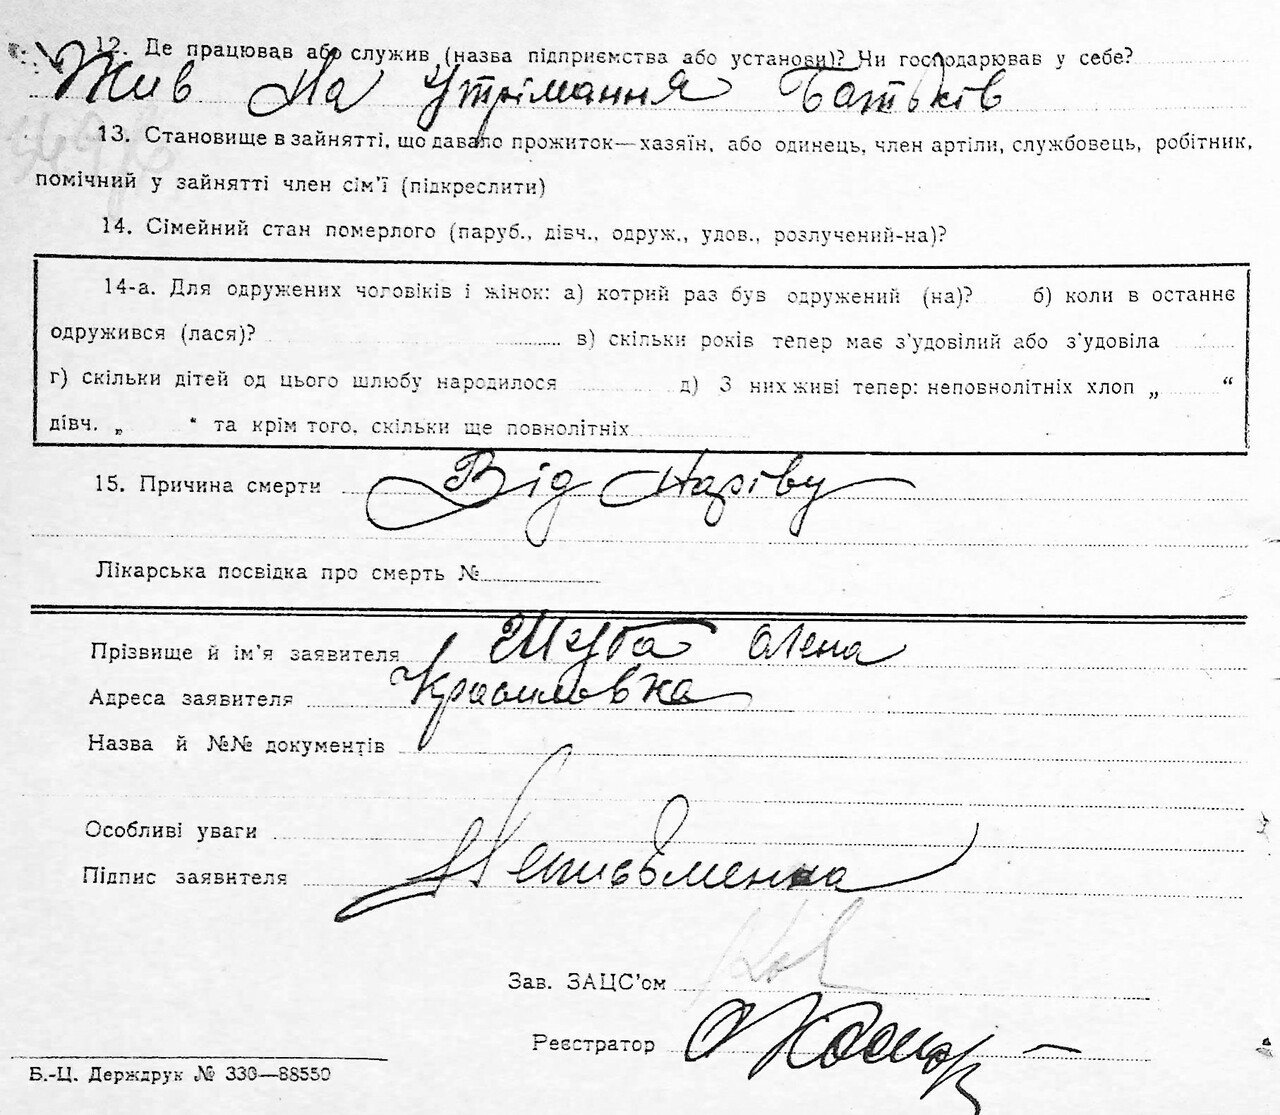 12. Де працював або служив (назва підприємства або установи)? Чи господарював у себе?
Жив на утрімання Батьків
13. Становище в зайнятті, що давало прожиток—хазяїн, або одинець, член артіли, службовець, робітник,
помічний у зайнятті член сім'ї (підкреслити)
14. Сімейний стан померлого (паруб., дівч., одруж., удов., розлучений-на)?
14-а. Для одружених чоговіків і жінок: а) котрий раз був одружений (на)? б) коли в останнє
одружився (лася)? в) скільки років тепер має з'удовілий або з'удовіла
г) скільки дітей од цього шлюбу народилося д) З них живі тепер: неповнолітніх хлоп „ “
дівч. „ “ та крім того, скільки ще повнолітніх
15. Причина смерти Від Наріву
Лікарська посвідка про смерть №
Прізвище й ім'я заявителя Олена
Адреса заявителя Красиловка
Назва й №№ документів
Особливі уваги
Підпис заявителя Неписьменна
Зав. ЗАЦС'ом
Реєстратор
Б.-Ц. Держдрук № 330—88550